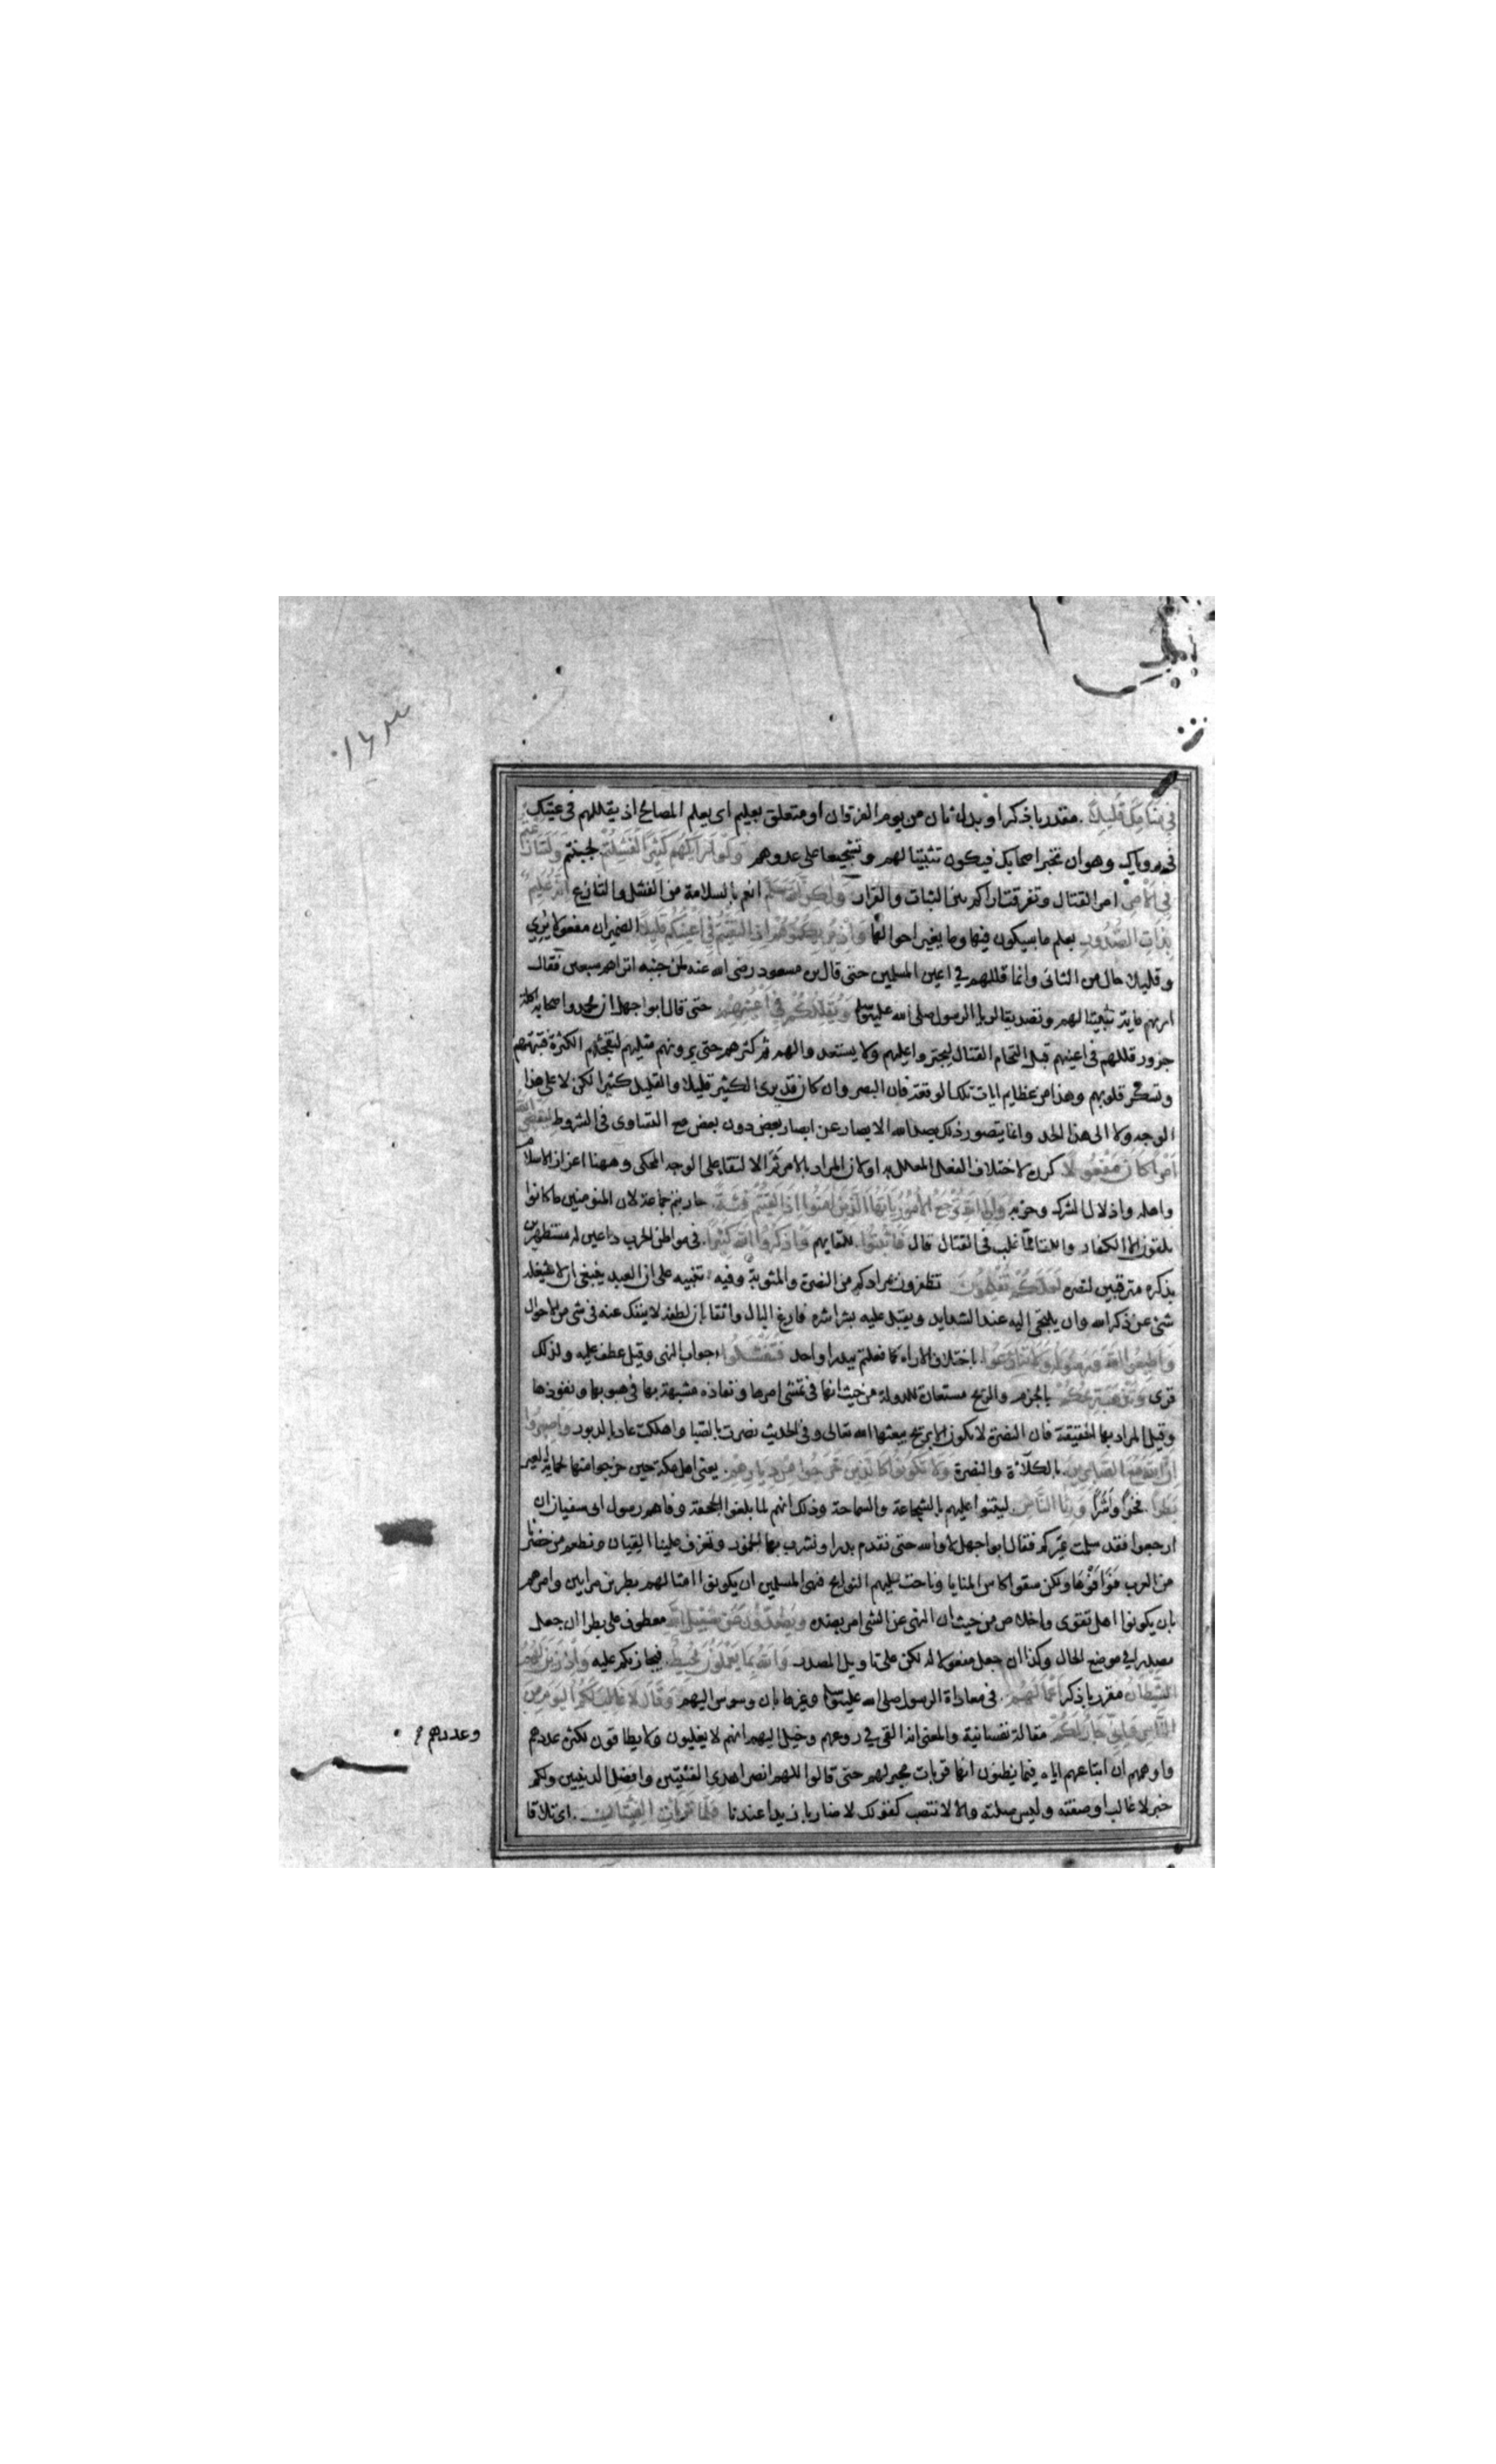 في منامك قليلا. مقدر باذكر او بدل ثان من يوم الفرقان او متعلق بعليم اى يعلم المصالح اذ يقللهم في عينك
في روياك وهو ان تخبر اصحابك فيكون تثبيتا لهم وتشجيعا على عدوهم ولو اراكهم كثيرا لفشلتم لجبنتم ولتنازعتم
في الامر امر القتال وتفرقت اراكم بين الثبات والفرار ولكن الله سلم انعم بالسلامة من الفشل والتنازع انه عليم
بذات الصدور يعلم ما سيكون فيها وما يغير احوالها واذ يريكموهم اذ التقيتم في اعينكم قليلا الضميران مفعولا يرى
وقليلا حال من الثانى وانما قللهم في اعين المسلمين حتى قال بن مسعود رضى الله عنه لمن جنبه اتراهم سبعين فقال
اراهم ماية تثبيتا لهم وتصديقا لرويا الرسول صلى الله عليه وسلم ويقللكم في اعينهم حتى قال ابو جهل ان محمدا واصحابه اكلة
جزور قللهم في اعينهم قبل التحام القتال ليجتروا عليهم ولا يستعدوا لهم ثم كثرهم حتى يرونهم مثليهم لتفجئهم الكثرة فتبهتهم
وتسكر قلوبهم وهذا من عظايم ايات تلك الوقعة فان البصر وان كان قد يرى الكثير قليلا والقليل كثيرا لكن لا على هذا
الوجه ولا الى هذا الحد وانما يتصور ذلك بصد الله الابصار عن ابصار بعض دون بعض مع التساوى في الشروط ليقضى الله
امرا كان مفعولا. كرره لاختلاف الفعل المعلل به او لان المراد بالامر ثم الالتقا على الوجه المحكى وههنا اعزاز الاسلام
واهله واذلال الشرك وحزبه والى الله ترجع الامور يايها الذين امنوا اذا لقيتم فئة. حاربتم جماعة لان المومنين ما كانوا
يلقون الا الكفار واللقا مما غلب في القتال قال فاثبتوا. للقايهم واذكروا الله كثيرا. في مواطن الحرب داعين له مستظهرين
بذكره مترقبين لنصره لعلكم تفلحون تظفرون بمرادكم من النصرة والمثوبة وفيه تنبيه على ان العبد ينبغى ان لا يشغله
شئ عن ذكر الله وان يلتجى اليه عند الشدايد ويقبل عليه بشراشره فارغ البال واثقا بان لطفه لا ينفك عنه في شى من الاحوال
واطيعوا الله ورسوله ولا تنازعوا. باختلاف الاراء كما فعلتم ببدر او احد فتفشلوا. جواب النهى وقيل عطف عليه ولذلك
قرى وتذهب ريحكم بالجزم والريح مستعارة للدولة من حيث انها في تمشى امرها ونفاذه مشبهة بها في هبوبها ونفوذها
وقيل المراد بها الحقيقة فان النصرة لا تكون الا بريح يبعثها الله تعالى وفي الحديث نصرت بالصبا واهلكت عاد بالدبور واصبروا
ان الله مع الصابرين. بالكلاءة والنصرة ولا تكونوا كالذين خرجوا من ديارهم. يعنى اهل مكة حين خرجوا منها لحماية العير
بطرا. فخرا واشرا ورئا الناس. ليثنوا عليهم بالشجاعة والسماحة وذلك انهم لما بلغوا الجحفة وفاهم رسول ابى سفيان ان
ارجعوا فقد سلمت عيركم فقال ابو جهل لا والله حتى نقدم بدرا ونشرب بها الخمور وتعزف علينا القيان ونطعم من حضرنا
من العرب فوافوها ولكن سقوا كاس المنايا وناحت عليهم النوايح فنهى المسلمين ان يكونوا امثالهم بطرين مرايين وامرهم
بان يكونوا اهل تقوى واخلاص من حيث ان النهى عن الشى امر بضده ويصدون عن سبيل الله معطوف على بطرا ان جعل
مصدرا في موضع الحال وكذا ان جعل مفعولا له لكن على تاويل المصدر والله بما يعملون محيط. فيجازيكم عليه واذ زين لهم
الشيطان مقدر باذكر اعمالهم. في معاداة الرسول صلى الله عليه وسلم وغيرها بان وسوس اليهم وقال لا غالب لكم اليوم من
الناس وانى جار لكم مقالة نفسانية والمعنى انه القى في روعهم وخيل اليهم انهم لا يغلبون ولا يطاقون لكثرة عددهم
وعددهم
واوهمهم ان اتباعهم اياه فيما يظنون انها قربات مجير لهم حتى قالوا اللهم انصر اهدى الفئتين وافضل الدينين ولكم
خبر لا غالب او صفته وليس صلته والا لانتصب كقولك لا ضاربا زيدا عندنا فلما تراءت الفئتان. اى تلاقا